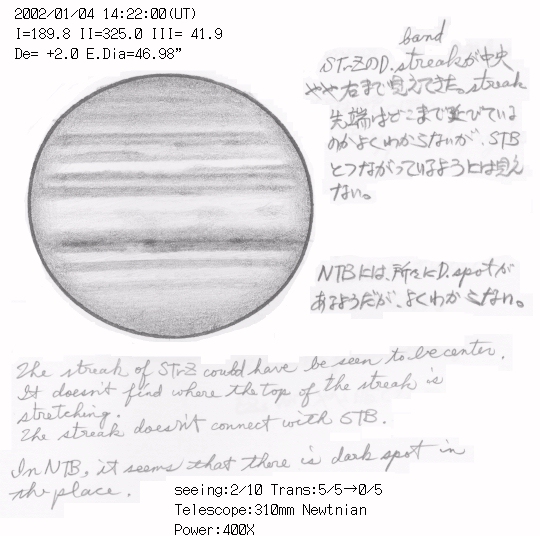 2002/01/04 14:22:00(UT)
I=189.8 II=325.0 III= 41.9
De= +2.0 E.Dia=46.98"
band
STrZのD.streakが中央
やや右まで見えてきた。streak
先端はどこまで延びている
のかよくわからないが、STB
とつながっているようには見え
ない。
NTBには、所々にD.spotが
あるようだが、よくわからない。
The streak of STrZ could have be seen to be center.
It doesn't find where the top of the streak is
stretching.
The streak doesn't connect with STB.
In NTB, it seems that there is dark spot in
the place.
seeing:2/10 Trans:5/5→0/5
Telescope:310mm Newtnian
Power:400X